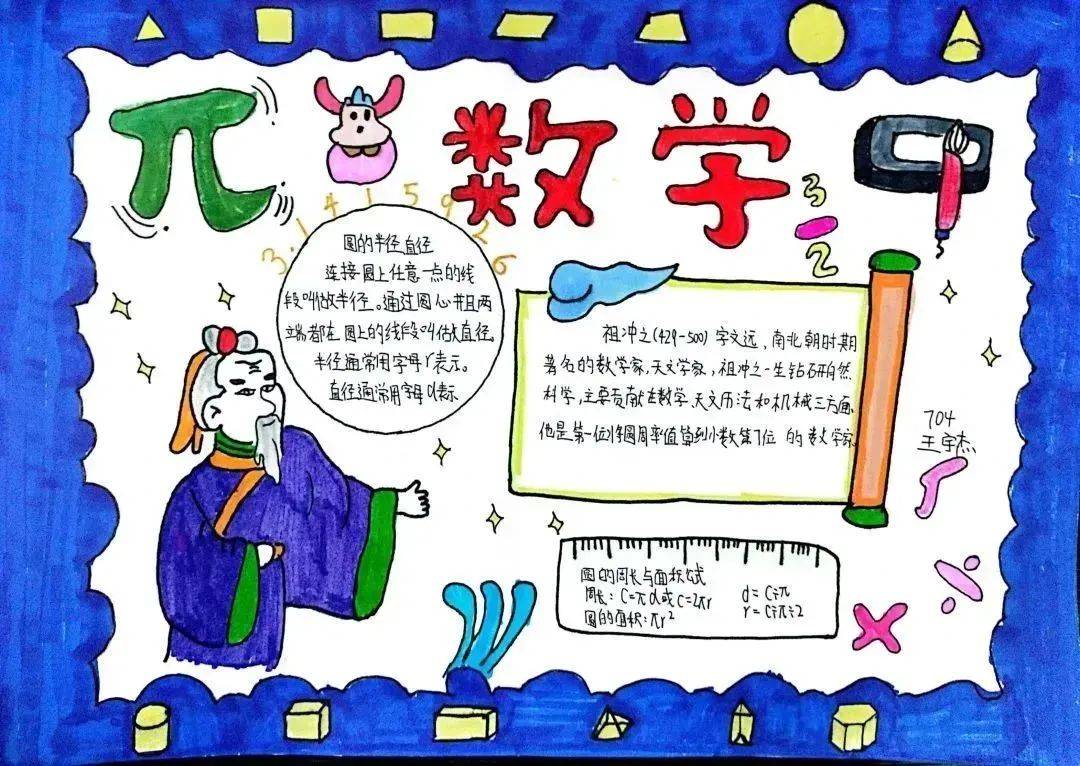 π
数学
3.1415926
3
2
圆的半径直径
连接圆上任意一点的线
段叫做半径。通过圆心并且两
端都在圆上的线段叫做直径。
半径通常用字母r表示。
直径通常用字母d表示
祖冲之(429-500)字文远，南北朝时期
著名的数学家,天文学家，祖冲之一生钻研自然
科学,主要贡献在数学、天文历法和机械三方面。
他是第一位将圆周率值算到小数第7位 的数学家
704
王宇杰
圆的周长与面积公式
周长：C=πd或C=2πr
圆的面积：πr²
d=C÷π
r=C÷π÷2